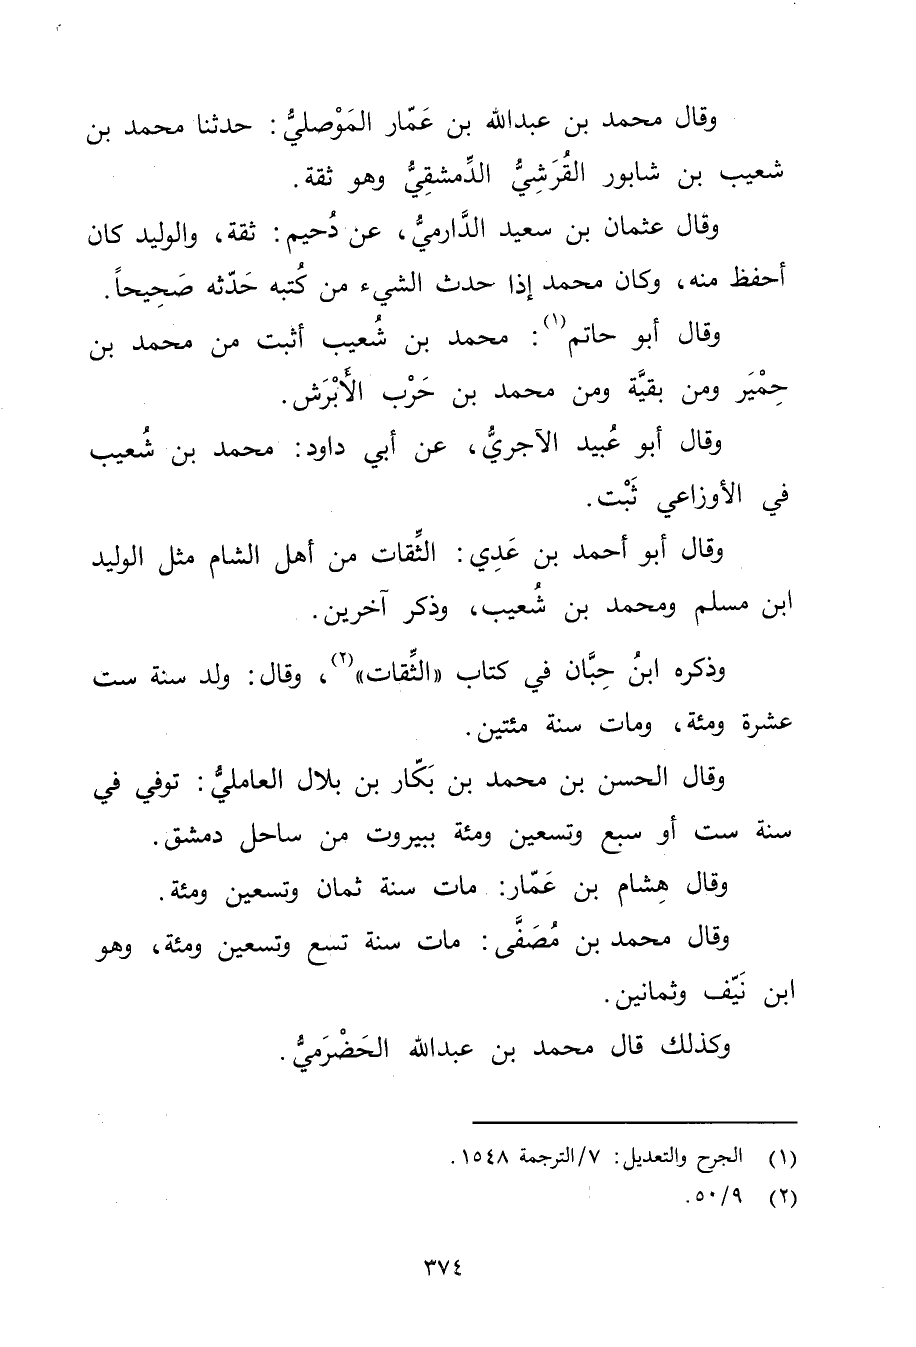 وقال محمد بن عبدالله بن عَمّار المَوْصليُّ: حدثنا محمد بن
شعيب بن شابور القُرَشِيُّ الدِّمشقِيُّ وهو ثقة.
وقال عثمان بن سعيد الدَّارميُّ، عن دُحيم: ثقة، والوليد كان
أحفظ منه، وكان محمد إذا حدث الشيء من كُتبه حَدّثه صَحِيحاً.
وقال أبو حاتم(١): محمد بن شُعيب أثبت من محمد بن
حِمْيَر ومن بقيَّة ومن محمد بن حَرْب الأَبْرَش.
وقال أبو عُبيد الآجريُّ، عن أبي داود: محمد بن شُعيب
في الأوزاعي ثَبْت.
وقال أبو أحمد بن عَدِي: الثِّقات من أهل الشام مثل الوليد
ابن مسلم ومحمد بن شُعيب، وذكر آخرين.
وذكره ابنُ حِبَّان في كتاب «الثِّقات»(٢)، وقال: ولد سنة ست
عشرة ومئة، ومات سنة مئتين.
وقال الحسن بن محمد بن بَكّار بن بلال العامليُّ: توفي في
سنة ست أو سبع وتسعين ومئة ببيروت من ساحل دمشق.
وقال هِشام بن عَمّار: مات سنة ثمان وتسعين ومئة.
وقال محمد بن مُصَفَّى: مات سنة تسع وتسعين ومئة، وهو
ابن نَيّف وثمانين.
وكذلك قال محمد بن عبدالله الحَضْرَميُّ.
(١) الجرح والتعديل: ٧/الترجمة ١٥٤٨.
(٢) ٥٠/٩.
٣٧٤